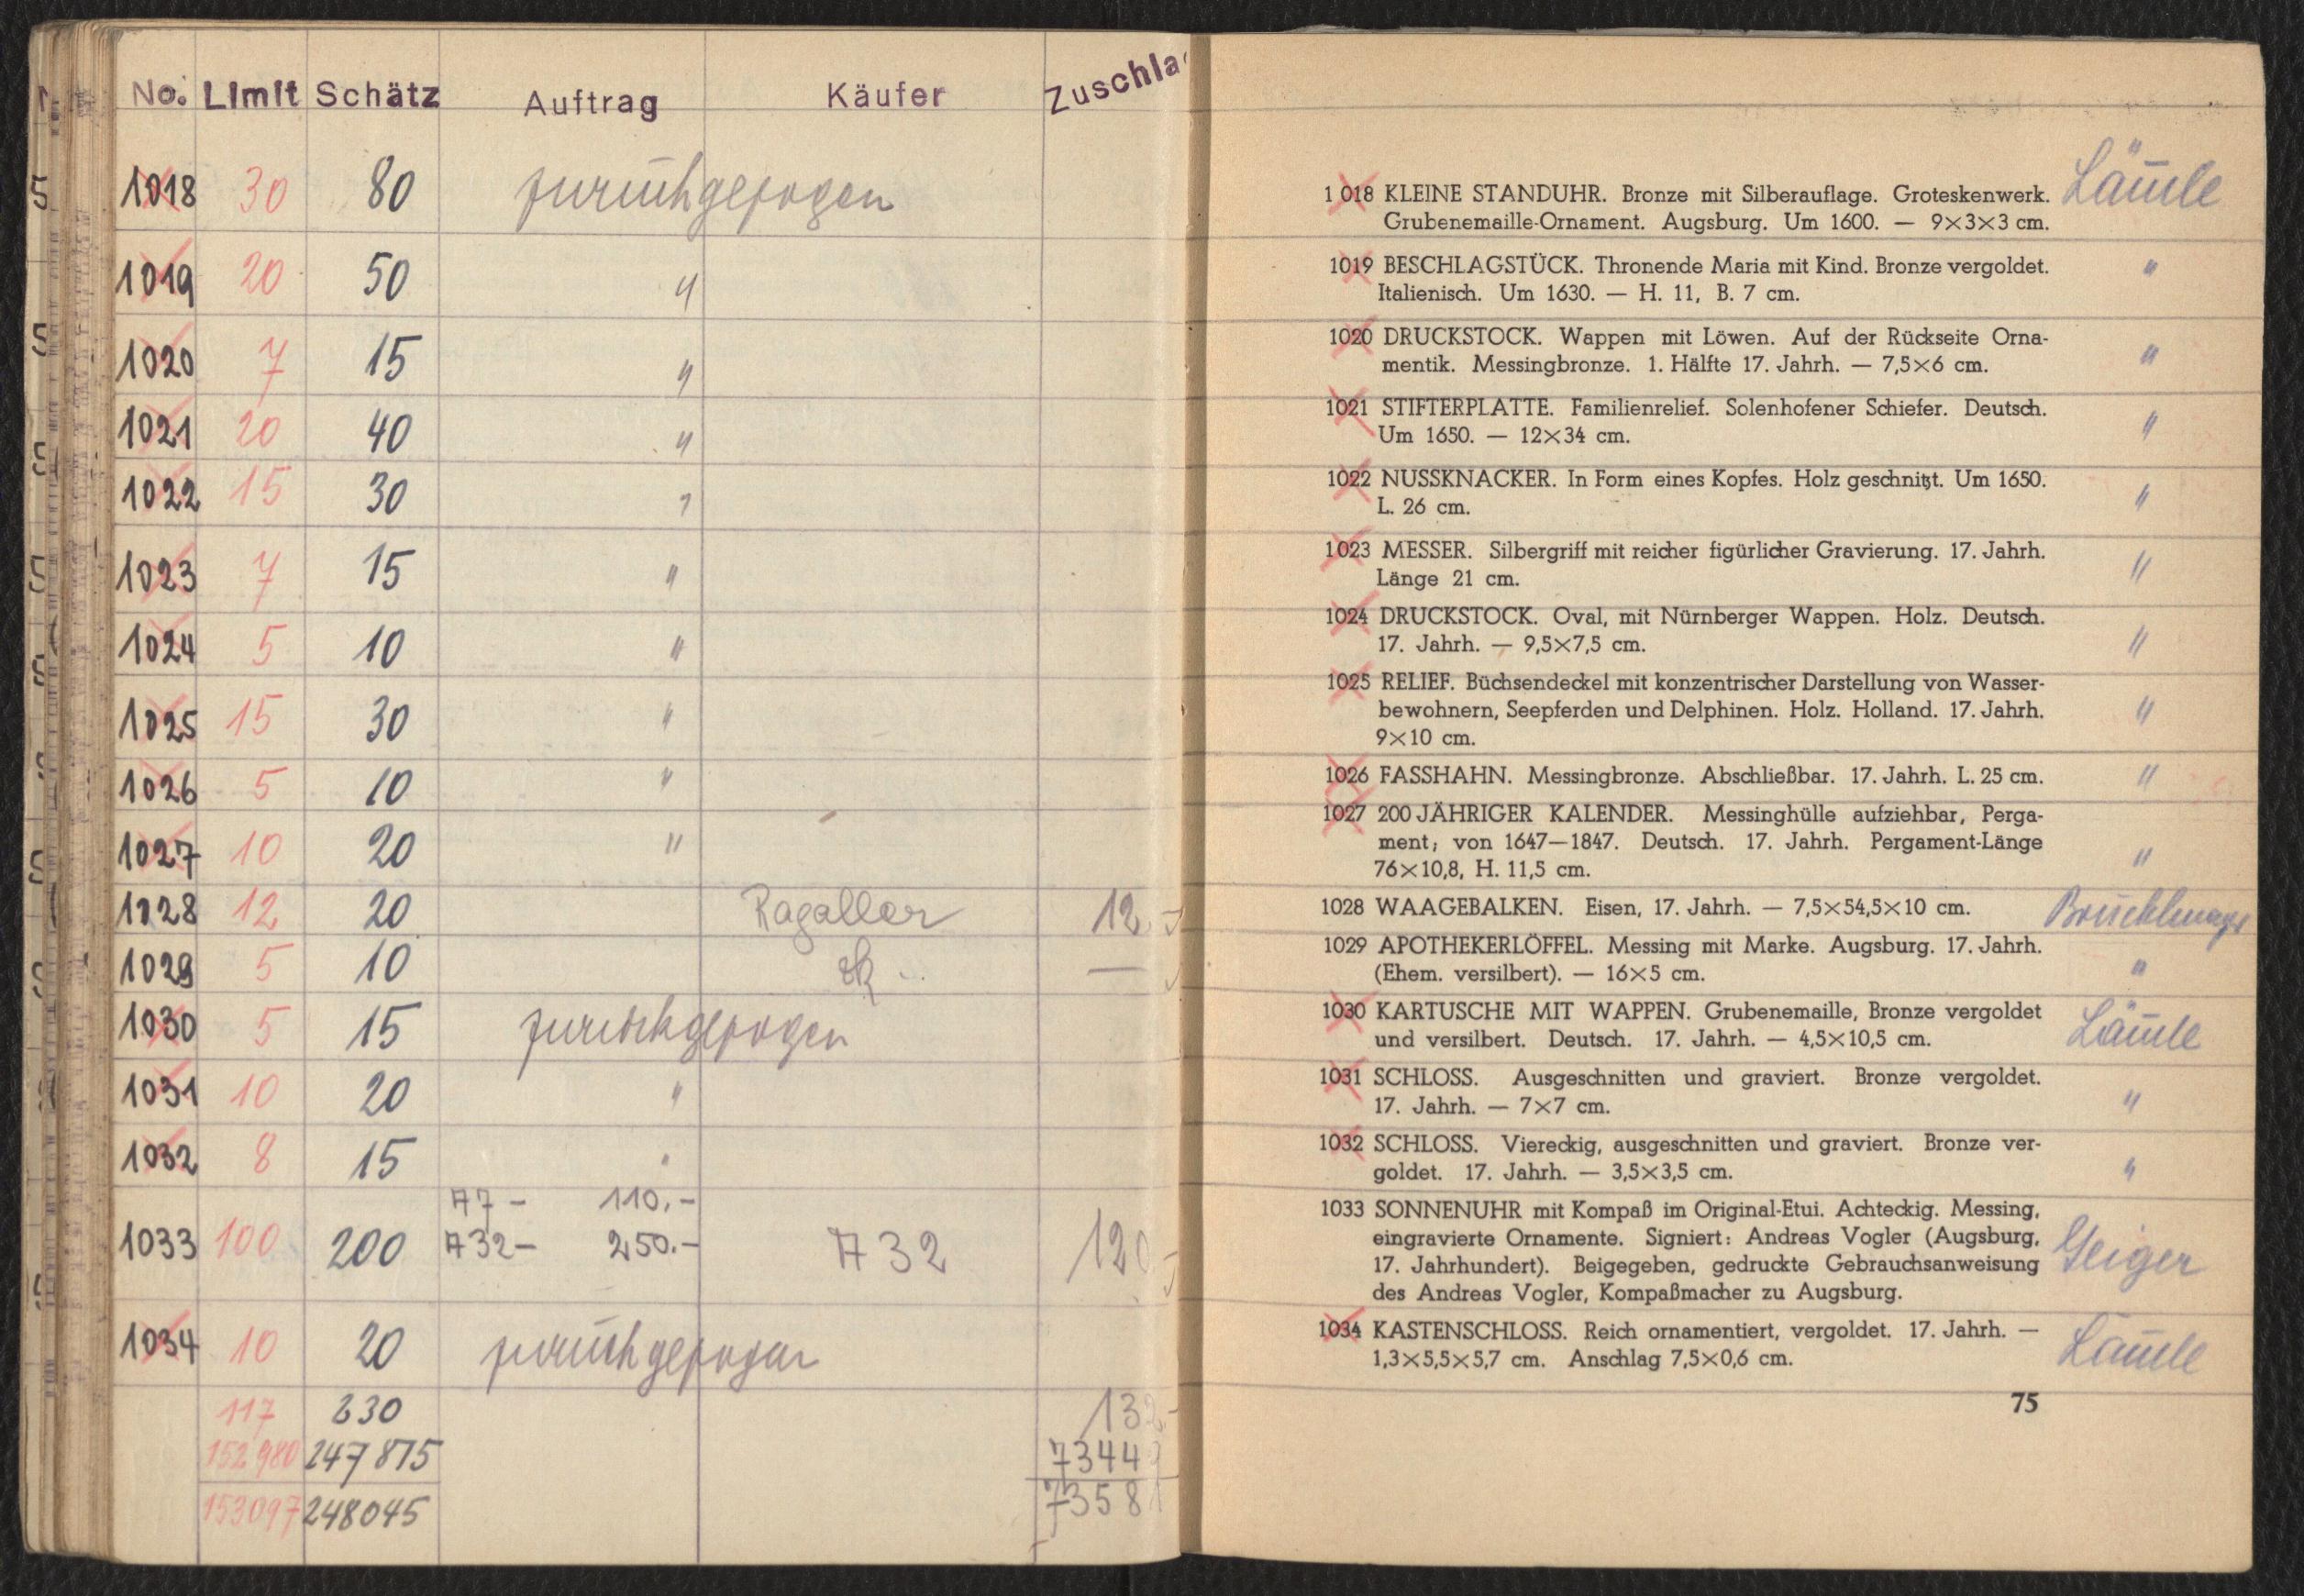 No. Limit Schätz Auftrag Käufer Zuschla
1018 30 80 zurückgezogen
1019 20 50 "
1020 7 15 "
1021 20 40 "
1022 15 30 "
1023 7 15 "
1024 5 10 "
1025 15 30 "
1026 5 10 "
1027 10 20 "
1028 12 20 Ragaller 12.-
1029 5 10 —
1030 5 15 zurückgezogen
1031 10 20 "
1032 8 15 "
A7 - 110.-
1033 100 200 A32 - 250.- A 32 120.-
1034 10 20 zurückgezogen
117 230 132.-
152980 247815 7344
153097 248045 7358
1 018 KLEINE STANDUHR. Bronze mit Silberauflage. Groteskenwerk. Lämle
Grubenemaille-Ornament. Augsburg. Um 1600. — 9×3×3 cm.
1019 BESCHLAGSTÜCK. Thronende Maria mit Kind. Bronze vergoldet. "
Italienisch. Um 1630. — H. 11, B. 7 cm.
1020 DRUCKSTOCK. Wappen mit Löwen. Auf der Rückseite Orna-
mentik. Messingbronze. 1. Hälfte 17. Jahrh. — 7,5×6 cm. "
1021 STIFTERPLATTE. Familienrelief. Solenhofener Schiefer. Deutsch.
Um 1650. — 12×34 cm. "
1022 NUSSKNACKER. In Form eines Kopfes. Holz geschnitzt. Um 1650.
L. 26 cm. "
1023 MESSER. Silbergriff mit reicher figürlicher Gravierung. 17. Jahrh.
Länge 21 cm. "
1024 DRUCKSTOCK. Oval, mit Nürnberger Wappen. Holz. Deutsch.
17. Jahrh. — 9,5×7,5 cm. "
1025 RELIEF. Büchsendeckel mit konzentrischer Darstellung von Wasser-
bewohnern, Seepferden und Delphinen. Holz. Holland. 17. Jahrh. "
9×10 cm.
1026 FASSHAHN. Messingbronze. Abschließbar. 17. Jahrh. L. 25 cm. "
1027 200 JÄHRIGER KALENDER. Messinghülle aufziehbar, Perga-
ment; von 1647—1847. Deutsch. 17. Jahrh. Pergament-Länge
76×10,8, H. 11,5 cm. "
1028 WAAGEBALKEN. Eisen, 17. Jahrh. — 7,5×54,5×10 cm.
1029 APOTHEKERLÖFFEL. Messing mit Marke. Augsburg. 17. Jahrh.
(Ehem. versilbert). — 16×5 cm. "
1030 KARTUSCHE MIT WAPPEN. Grubenemaille, Bronze vergoldet
und versilbert. Deutsch. 17. Jahrh. — 4,5×10,5 cm. Lämle
1031 SCHLOSS. Ausgeschnitten und graviert. Bronze vergoldet.
17. Jahrh. — 7×7 cm. "
1032 SCHLOSS. Viereckig, ausgeschnitten und graviert. Bronze ver-
goldet. 17. Jahrh. — 3,5×3,5 cm. "
1033 SONNENUHR mit Kompaß im Original-Etui. Achteckig. Messing,
eingravierte Ornamente. Signiert: Andreas Vogler (Augsburg,
17. Jahrhundert). Beigegeben, gedruckte Gebrauchsanweisung Geiger
des Andreas Vogler, Kompaßmacher zu Augsburg.
1034 KASTENSCHLOSS. Reich ornamentiert, vergoldet. 17. Jahrh. —
1,3×5,5×5,7 cm. Anschlag 7,5×0,6 cm. Lämle
75